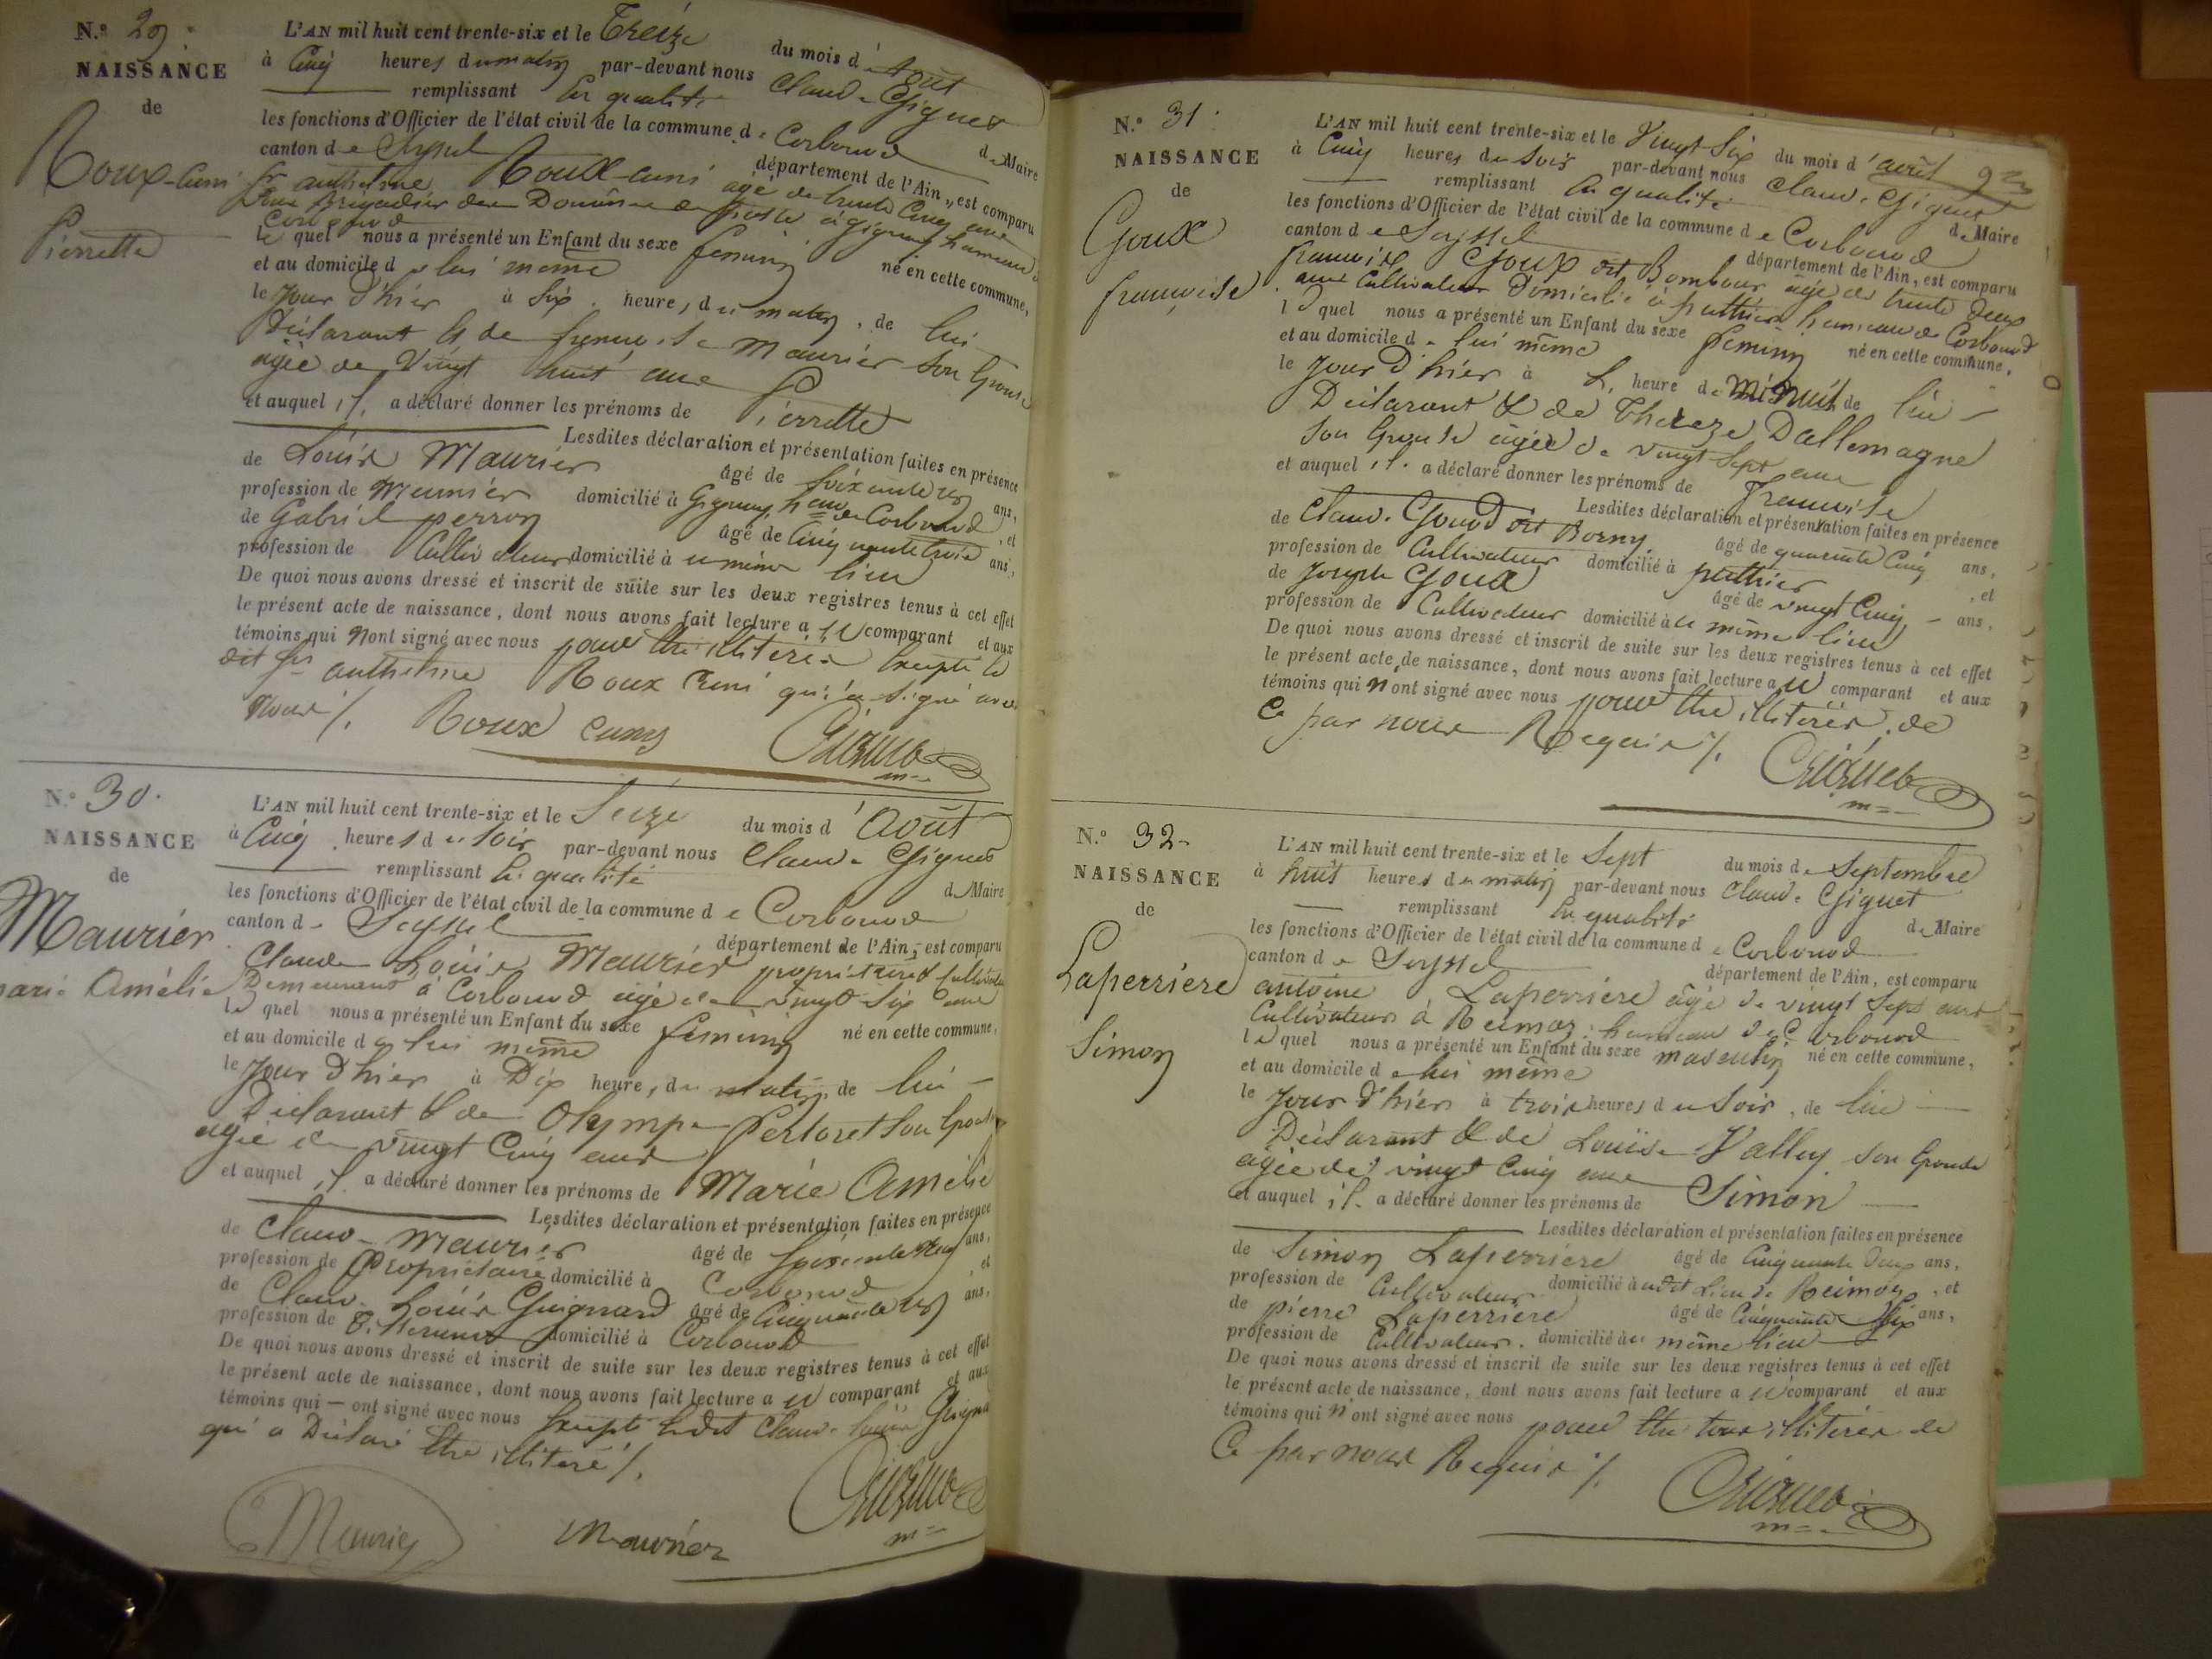 N.º 29.
NAISSANCE
de
Roux-Cuni
Pierrette
L'AN mil huit cent trente-six et le Treize du mois d'Août
à Cinq heures du matin par-devant nous Claude Giguet
remplissant la qualité de Maire
les fonctions d'Officier de l'état civil de la commune de Corbonod
canton de Seyssel département de l'Ain, est comparu
anthelme Roux-Cuni agé de trente Cinq ans
Brigadier des Douanes de poste à gignez hameau de
Corbonod
lequel nous a présenté un Enfant du sexe feminin né en cette commune,
et au domicile de lui même
le Jour d'hier à Six heures du matin, de lui
Déclarant & de francoise Maurier Son Epouse
agée de Vingt huit ans
et auquel il a déclaré donner les prénoms de Pierrette
Lesdites déclaration et présentation faites en présence
de Louis Maurier âgé de Soixante un ans,
profession de Meunier domicilié à Gignez hau de Corbonod, et
de Gabriel perron âgé de Cinquante trois ans,
profession de Cultivateur domicilié à u même lieu
De quoi nous avons dressé et inscrit de suite sur les deux registres tenus à cet effet
le présent acte de naissance, dont nous avons fait lecture au comparant et aux
témoins qui n'ont signé avec nous pour être illiterés Excepté le
dit anthelme Roux Cuni qui a signé avec
Nous /.
Roux Cuny Giguet
m
N.º 30.
NAISSANCE
de
Maurier
Marie Amélie
L'AN mil huit cent trente-six et le Seize du mois d'Août
à Cinq heures du soir par-devant nous Claude Giguet
remplissant la qualité de Maire
les fonctions d'Officier de l'état civil de la commune de Corbonod
canton de Seyssel département de l'Ain, est comparu
Claude Louis Maurier propriétaire & Cultivateur
Demeurant à Corbonod agé de vingt Six ans
lequel nous a présenté un Enfant du sexe feminin né en cette commune,
et au domicile de lui même
le Jour d'hier à Dix heures du matin, de lui
Déclarant & de Olympe Perloret Son Epouse
agée de vingt Cinq ans
et auquel il a déclaré donner les prénoms de Marie Amélie
Lesdites déclaration et présentation faites en présence
de Claude Maurier âgé de ans,
profession de Propriétaire domicilié à Corbonod, et
de Claude Louis Guignard âgé de Cinquante un ans,
profession de Tisserand domicilié à Corbonod
De quoi nous avons dressé et inscrit de suite sur les deux registres tenus à cet effet
le présent acte de naissance, dont nous avons fait lecture au comparant et aux
témoins qui — ont signé avec nous Excepté ledit Claude Louis Guigna
qui a Déclaré être illiteré /.
Maurier Maurier Giguet
m
N.º 31.
NAISSANCE
de
Goux
francoise
L'AN mil huit cent trente-six et le Vingt Six du mois d'août
à Cinq heures du Soir par-devant nous Claude Giguet
remplissant la qualité de Maire
les fonctions d'Officier de l'état civil de la commune de Corbonod
canton de Seyssel département de l'Ain, est comparu
francois Goux dit Bombour agé de trente Deux
ans Cultivateur Domicilié à puthier hameau de Corbonod
lequel nous a présenté un Enfant du sexe feminin né en cette commune,
et au domicile de lui même
le Jour d'hier à L' heure de Minuit de lui
Déclarant & de Thereze Dallemagne
Son Epouse agée de vingt Sept ans
et auquel il a déclaré donner les prénoms de Francoise
Lesdites déclaration et présentation faites en présence
de Claude Goux dit Borny âgé de quarante Cinq ans,
profession de Cultivateur domicilié à puthier, et
de Joseph Goux âgé de vingt Cinq ans,
profession de Cultivateur domicilié à u même lieu
De quoi nous avons dressé et inscrit de suite sur les deux registres tenus à cet effet
le présent acte de naissance, dont nous avons fait lecture au comparant et aux
témoins qui n'ont signé avec nous pour être illiterés de
Ce par nous Requis /.
Giguet
m
N.º 32.
NAISSANCE
de
Laperriere
Simon
L'AN mil huit cent trente-six et le Sept du mois de Septembre
à huit heures du matin par-devant nous Claude Giguet
remplissant la qualité de Maire
les fonctions d'Officier de l'état civil de la commune de Corbonod
canton de Seyssel département de l'Ain, est comparu
antoine Laperriere âgé de vingt Sept ans
Cultivateur à Reimoz hameau de Corbonod
lequel nous a présenté un Enfant du sexe masculin né en cette commune,
et au domicile de lui même
le Jour d'hier à trois heures du Soir, de lui
Déclarant & de Louise Valley son Epouse
agée de vingt Cinq ans
et auquel il a déclaré donner les prénoms de Simon
Lesdites déclaration et présentation faites en présence
de Simon Laperriere âgé de Cinquante Deux ans,
profession de Cultivateur domicilié à udit Lieu de Reimoz, et
de pierre Laperriere âgé de Cinquante Six ans,
profession de Cultivateur domicilié à u même lieu
De quoi nous avons dressé et inscrit de suite sur les deux registres tenus à cet effet
le présent acte de naissance, dont nous avons fait lecture au comparant et aux
témoins qui n'ont signé avec nous pour être tous illiterés de
Ce par nous Requis /.
Giguet
m